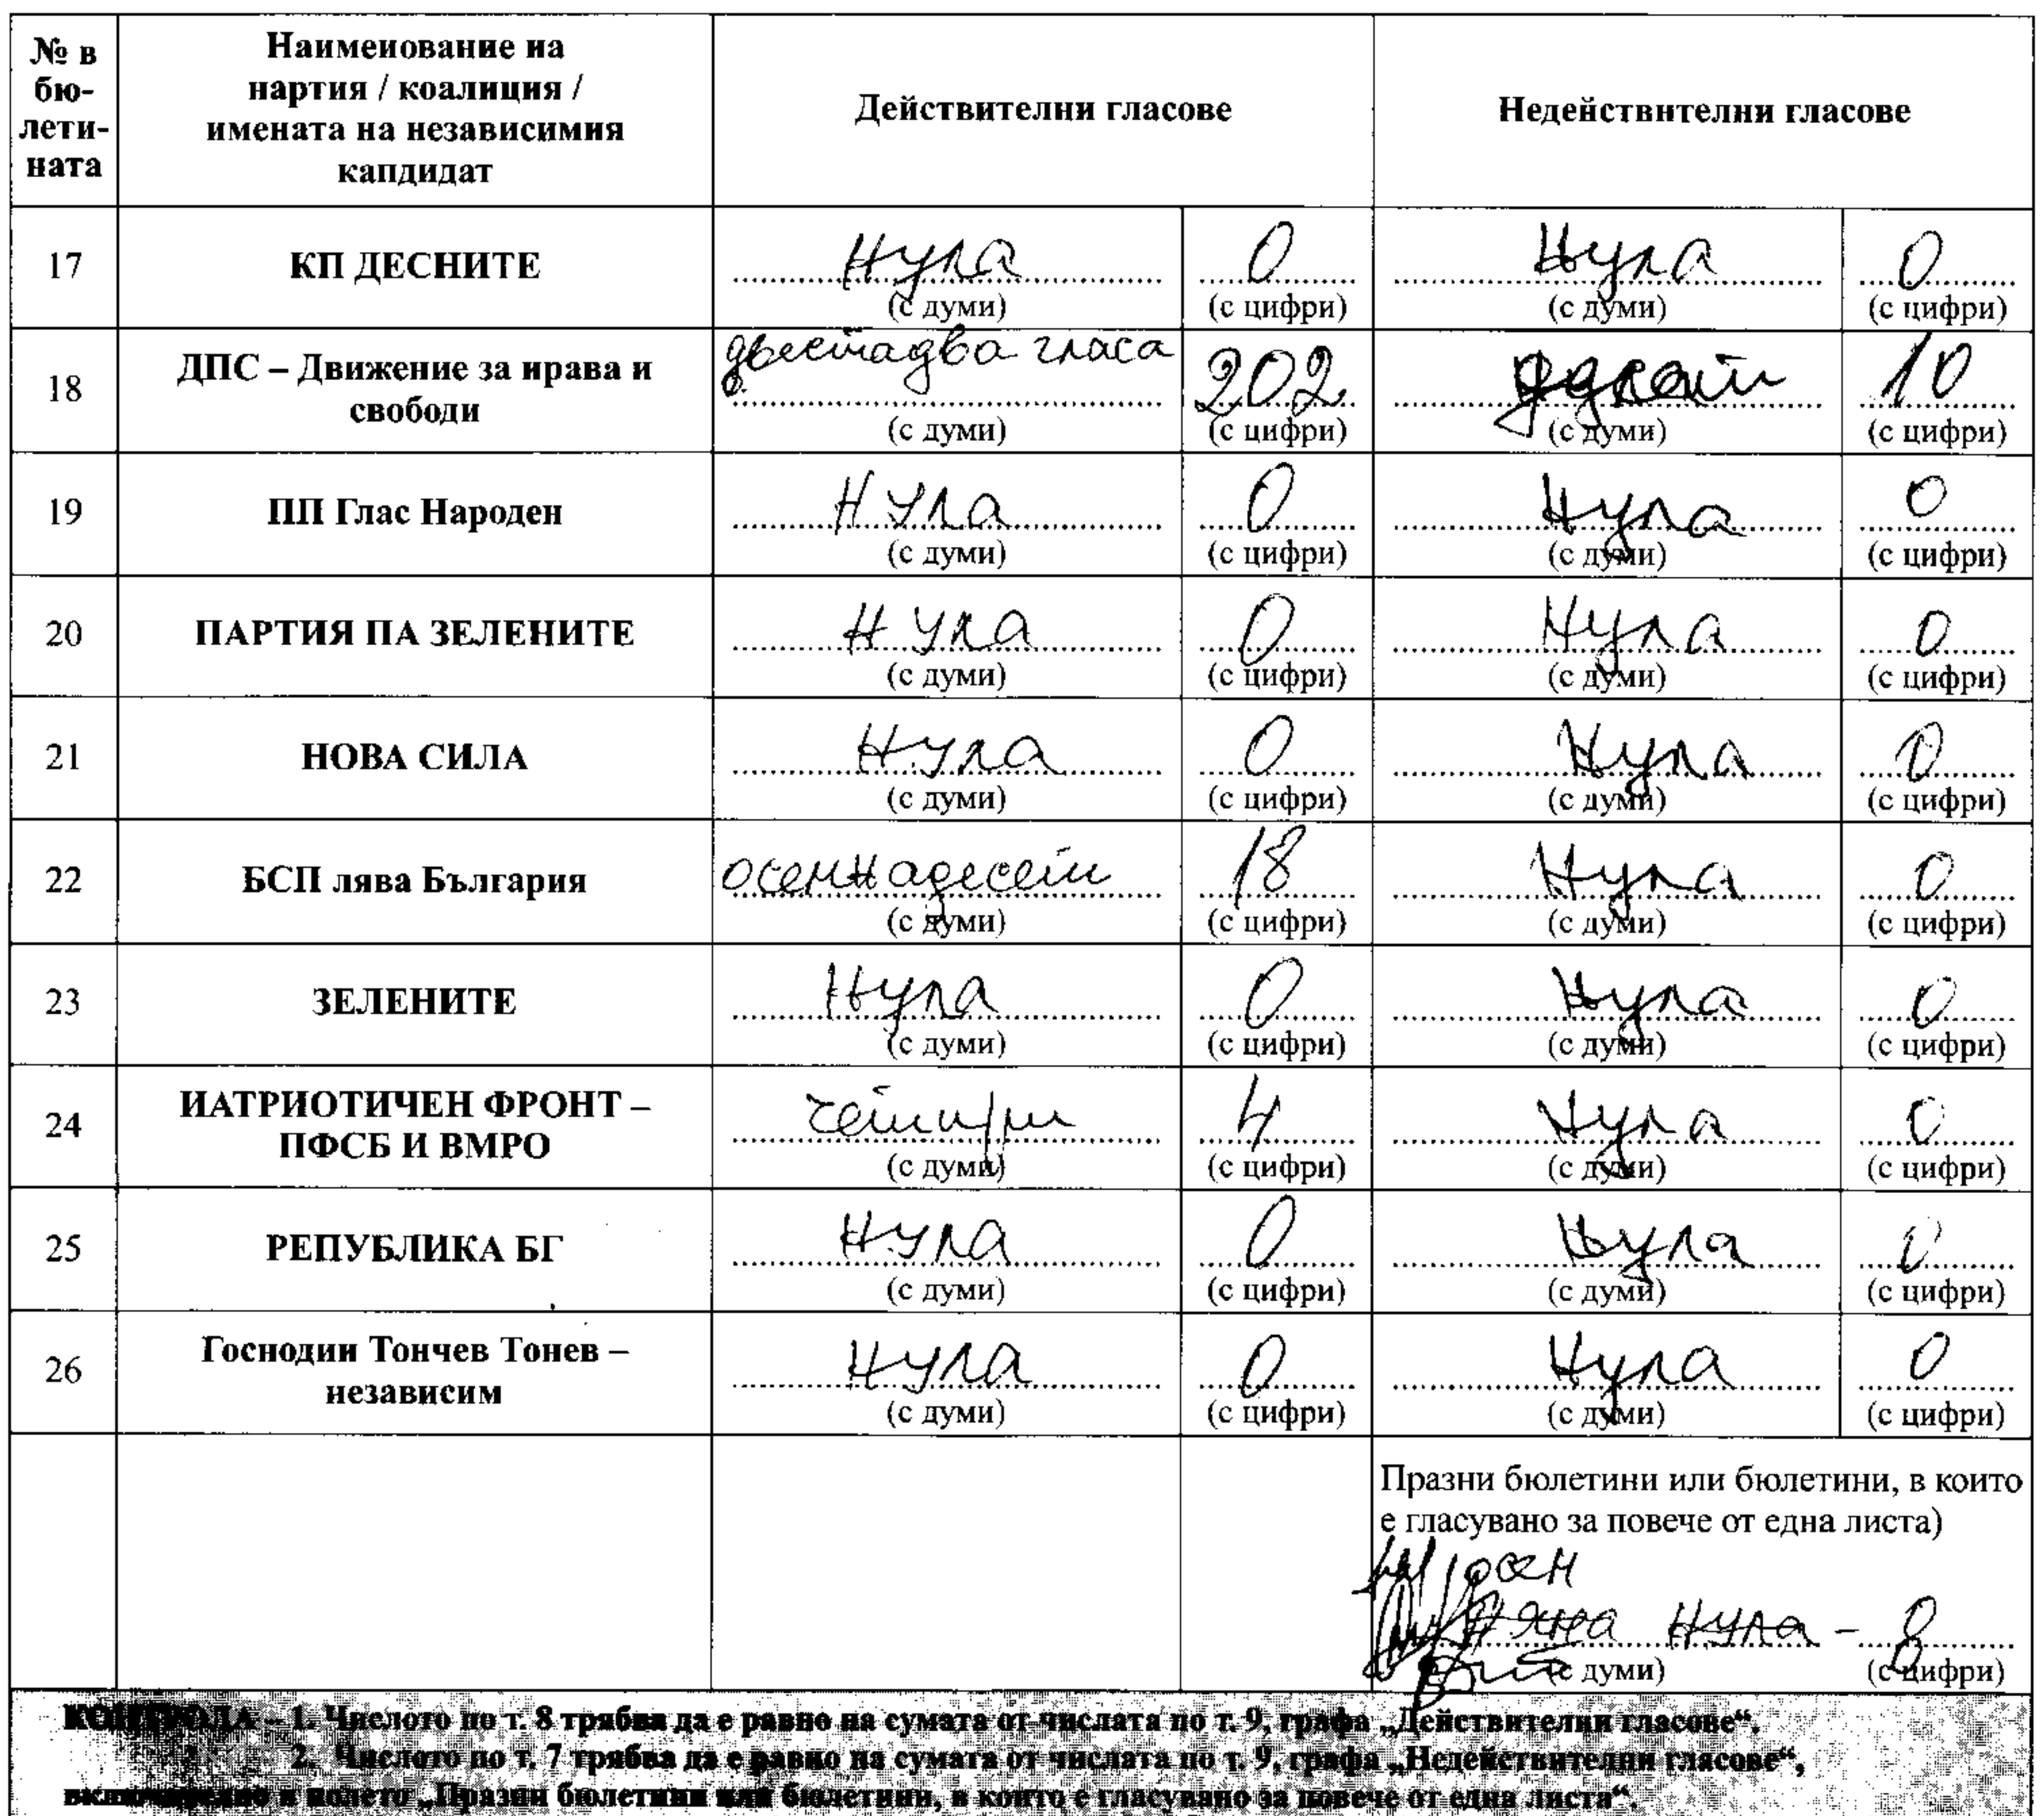 № в бю-лети-ната Наименование на партия / коалиция / имената на независимия кандидат Действителни гласове Недействителни гласове
17 КП ДЕСНИТЕ Нула 0 Нула 0
(с думи) (с цифри) (с думи) (с цифри)
18 ДПС – Движение за права и свободи двестадва гласа 202 10
(с думи) (с цифри) (с думи) (с цифри)
19 ПП Глас Народен Нула 0 Нула 0
(с думи) (с цифри) (с думи) (с цифри)
20 ПАРТИЯ НА ЗЕЛЕНИТЕ Нула 0 Нула 0
(с думи) (с цифри) (с думи) (с цифри)
21 НОВА СИЛА Нула 0 Нула 0
(с думи) (с цифри) (с думи) (с цифри)
22 БСП лява България осемнадесет 18 Нула 0
(с думи) (с цифри) (с думи) (с цифри)
23 ЗЕЛЕНИТЕ Нула 0 Нула 0
(с думи) (с цифри) (с думи) (с цифри)
24 ПАТРИОТИЧЕН ФРОНТ – ПФСБ И ВМРО четири 4 Нула 0
(с думи) (с цифри) (с думи) (с цифри)
25 РЕПУБЛИКА БГ Нула 0 Нула 0
(с думи) (с цифри) (с думи) (с цифри)
26 Господин Тончев Тонев – независим Нула 0 Нула 0
(с думи) (с цифри) (с думи) (с цифри)
Празни бюлетини или бюлетини, в които
е гласувано за повече от една листа)
осен
Нула – 8
(с думи) (с цифри)
КОНТРОЛА – 1. Числото по т. 8 трябва да е равно на сумата от числата по т. 9, графа „Действителни гласове“.
2. Числото по т. 7 трябва да е равно на сумата от числата по т. 9, графа „Недействителни гласове“,
включително и полето „Празни бюлетини или бюлетини, в които е гласувано за повече от една листа“.